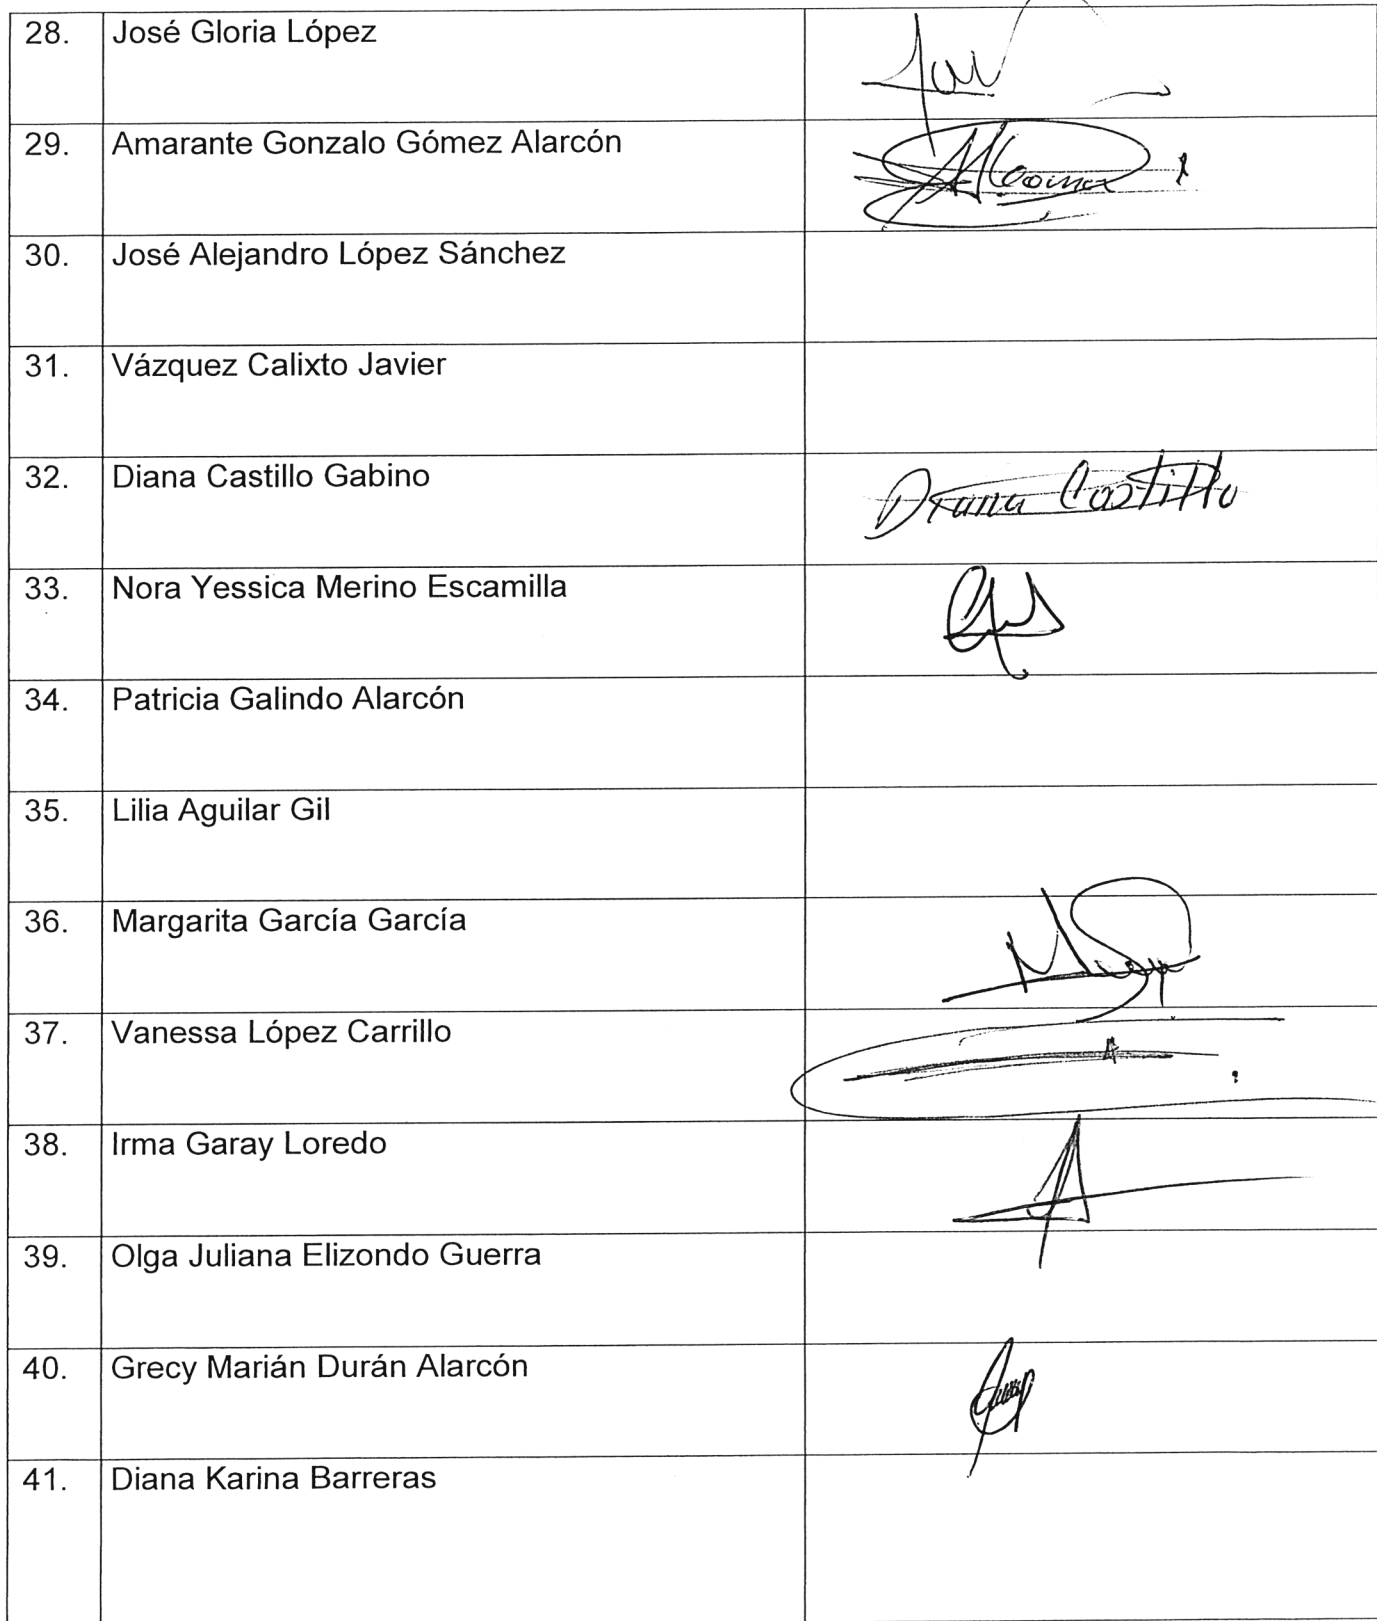 28. José Gloria López
29. Amarante Gonzalo Gómez Alarcón
30. José Alejandro López Sánchez
31. Vázquez Calixto Javier
32. Diana Castillo Gabino Diana Castillo
33. Nora Yessica Merino Escamilla
34. Patricia Galindo Alarcón
35. Lilia Aguilar Gil
36. Margarita García García
37. Vanessa López Carrillo
38. Irma Garay Loredo
39. Olga Juliana Elizondo Guerra
40. Grecy Marián Durán Alarcón
41. Diana Karina Barreras